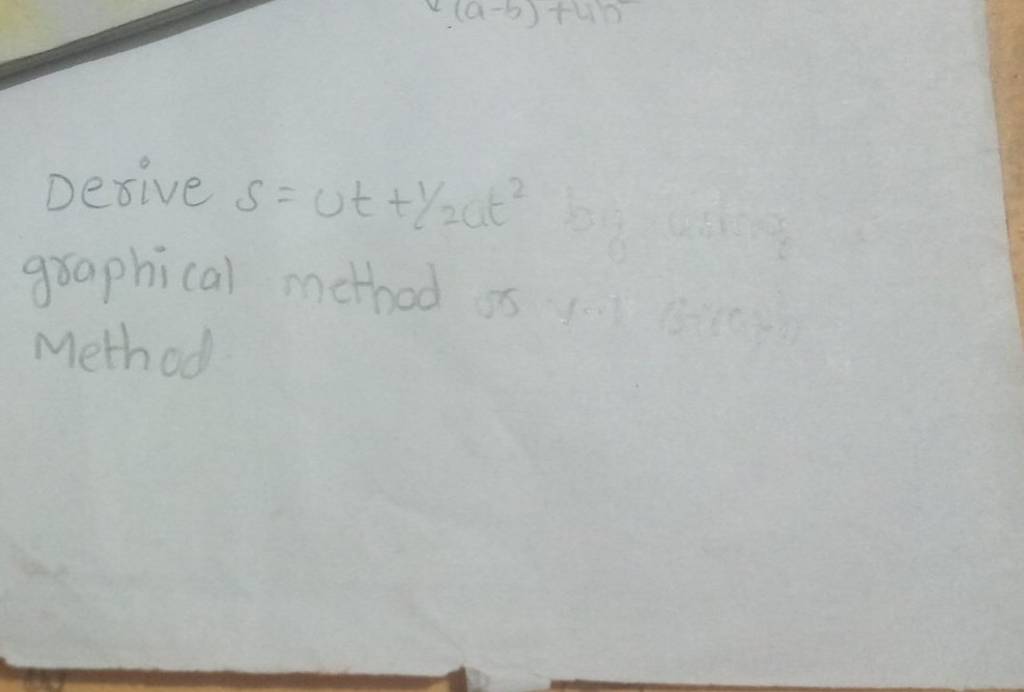 (a-b) + 4b²
Derive s = ut + 1/2at² by using
graphical method or v-t Graph
Method